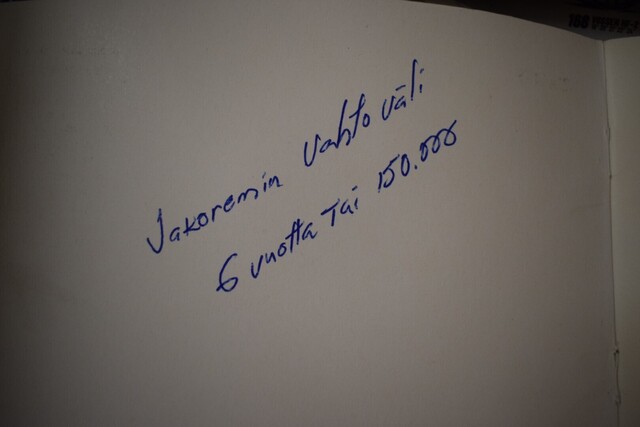 Jakoremin Vahto väli
6 vuotta Tai 150.000